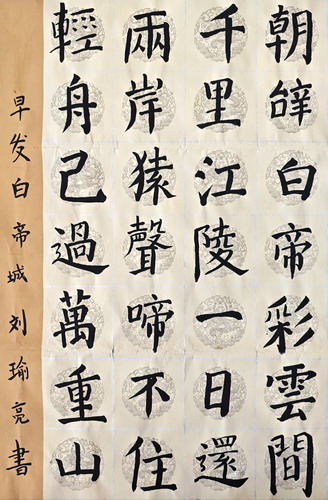 朝辭白帝彩雲間
千里江陵一日還
兩岸猿聲啼不住
輕舟已過萬重山
早发白帝城刘瑜亮書